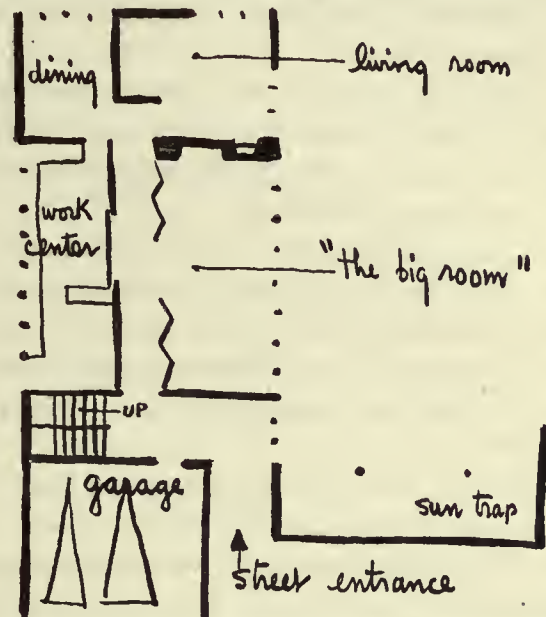 dining
living room
work
center
"the big room"
UP
garage
sun trap
street entrance